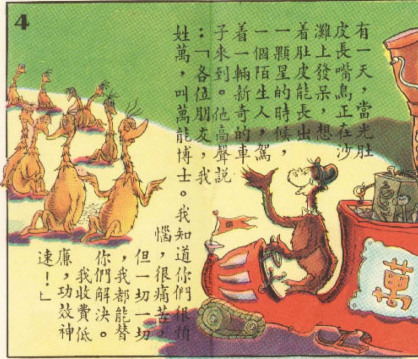 4
有一天，當光肚
皮長嘴鳥正在沙
灘上發呆，想
着肚皮能長出
一顆星的時候，
一個陌生人，駕
着一輛新奇的車
子來到。他高聲說
：「各位朋友，我
姓萬，叫萬能博士。我知道你們很煩
惱，很痛苦，
但一切一切
，我都能替
你們解決。
我收費低
廉，功效神
速！」
萬